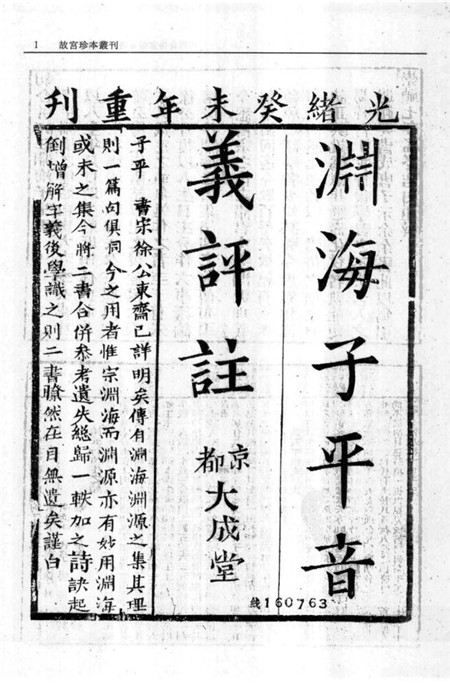 1 故宮珍本叢刊
光緒癸未年重刊
淵海子平音
義評註
京都大成堂
子平 書宋徐公東齋已詳明矣傳有淵海淵源之集其理
則一篇句俱同今之用者惟宗淵海而淵源亦有妙用淵海
或未之集今將二書合併參考遺失總歸一軼加之詩訣起
例增解字義後學識之則二書瞭然在目無遺矣謹白
160763